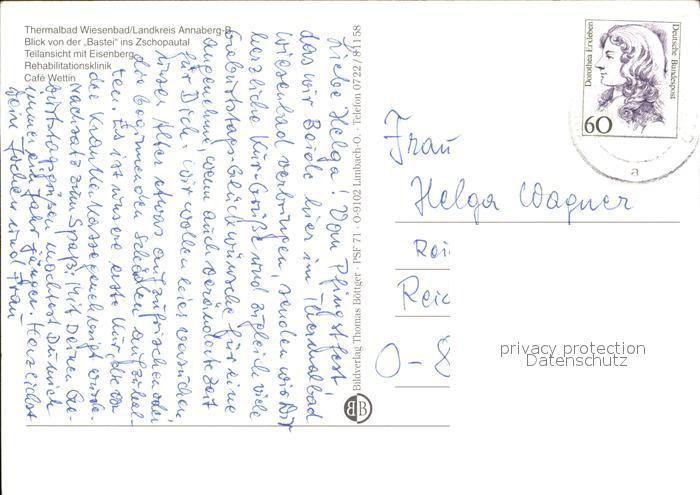 Thermalbad Wiesenbad/Landkreis Annaberg-B
Blick von der „Bastei" ins Zschopautal
Teilansicht mit Eisenberg
Rehabilitationsklinik
Café Wettin
Liebe Helga! Vom Pfingstfest,
das wir Beide hier im Thermalbad
Wiesenbad verbringen, senden wir Dir
herzliche Kur-Grüße und zugleich viele
Geburtstags-Glückwünsche für eine
angenehme, wenn auch veränderte Zeit
für Dich. Wir wollen hier versuchen
unser Alter etwas aufzufrischen oder
die beginnenden Schäden aufzuhal-
ten. Es ist unsere erste Kur, die von
der Krankenkasse genehmigt wurde.
Nachsatz zum Spaß: Mit Deinen Ge-
burtstagsgrüßen machtest Du mich
immer ein Jahr jünger. Herzlichst
Dein Jochen und Frau
Bildverlag Thomas Böttger · PSF 71 · O-9102 Limbach-O. · Telefon 0722 / 81158
B B
Dorothea Erxleben
Deutsche Bundespost
60
a
Frau
Helga Wagner
Rei
Reic
O-8
privacy protection
Datenschutz